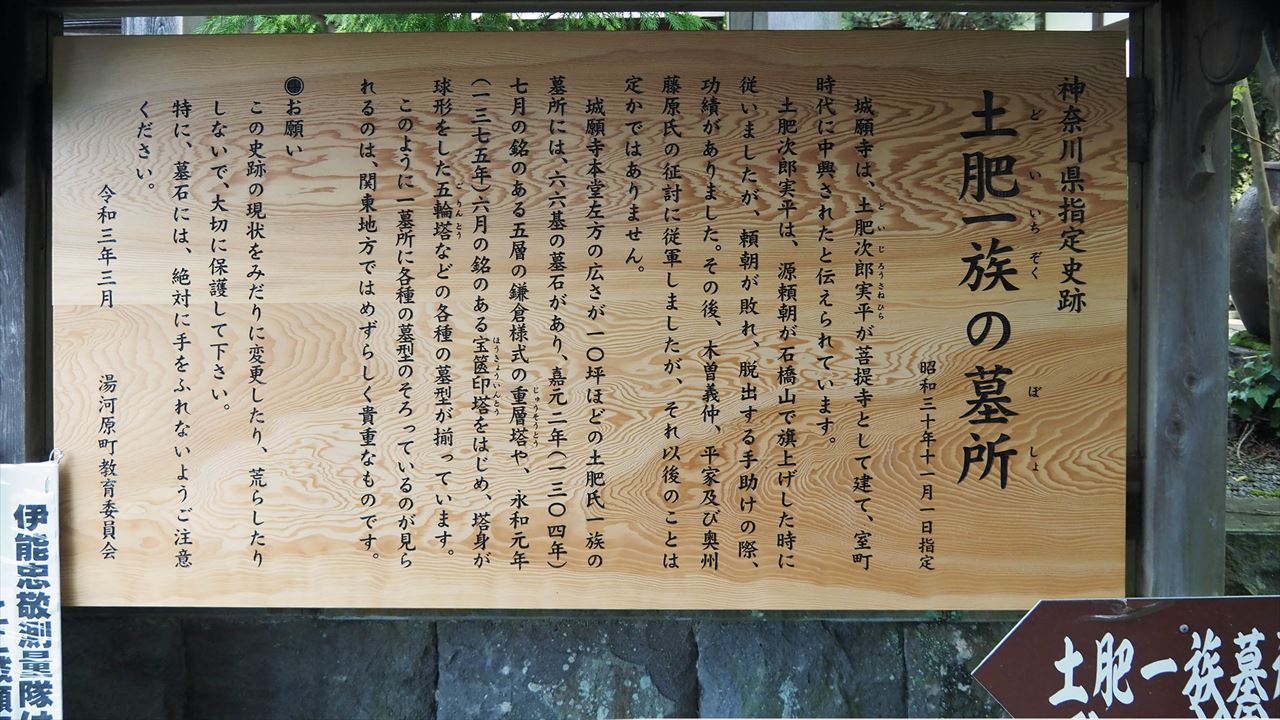 神奈川県指定史跡
土肥一族の墓所
どいいちぞく ぼしょ
昭和三十年十一月一日指定
城願寺は、土肥次郎実平が菩提寺として建て、室町
どいじろうさねひら
時代に中興されたと伝えられています。
土肥次郎実平は、源頼朝が石橋山で旗上げした時に
従いましたが、頼朝が敗れ、脱出する手助けの際、
功績がありました。その後、木曽義仲、平家及び奥州
藤原氏の征討に従軍しましたが、それ以後のことは
定かではありません。
城願寺本堂左方の広さが一〇坪ほどの土肥氏一族の
墓所には、六六基の墓石があり、嘉元二年(一三〇四年)
七月の銘のある五層の鎌倉様式の重層塔や、永和元年
じゅうそうとう
(一三七五年)六月の銘のある宝篋印塔をはじめ、塔身が
ほうきょういんとう
球形をした五輪塔などの各種の墓型が揃っています。
ごりんとう
このように一墓所に各種の墓型のそろっているのが見ら
れるのは、関東地方ではめずらしく貴重なものです。
◉お願い
この史跡の現状をみだりに変更したり、荒らしたり
しないで、大切に保護して下さい。
特に、墓石には、絶対に手をふれないようご注意
ください。
令和三年三月 湯河原町教育委員会
伊能忠敬測量隊
土肥一族墓